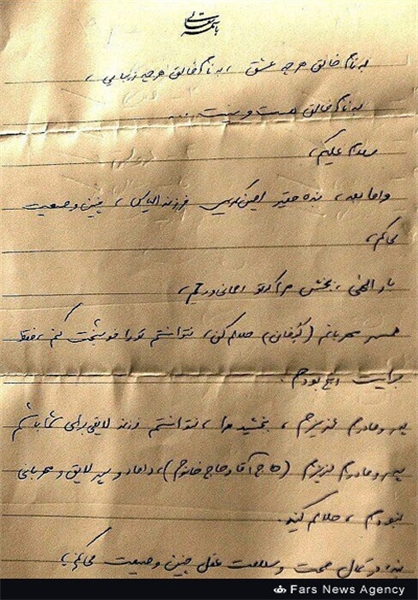 باسمه تعالی
به نام خالق هرچه عشق، به نام خالق هرچه زیبایی،
به نام خالق هست و نیست ...
سلام علیکم،
و اما بعد، بنده حقیر امین کریمی فرزند الیاس، چنین وصیت
می‌کنم،
بار الهی، ببخش مرا که
همسر مهربانم () حلالم کن، نتوانستم تو را خوشبخت کنم، فقط
برایت رنج بودم.
پدر و مادرم عزیزم، ببخشید مرا، نتوانستم فرزند لایقی برای شما باشم
پدر و مادرم عزیزم (حاج آقا و حاج خانوم)، داماد و پسر لایق و مهربانی
نبودم، حلالم کنید.
بنده در کمال صحت و سلامت عقل چنین وصیت می‌کنم
Fars News Agency